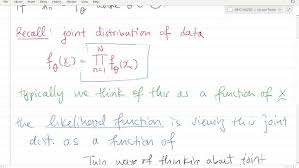 Recall: joint distribution of data
f_θ(x) = ∏_{n=1}^{N} f_θ(x_n)
Typically we think of this as a function of x
the likelihood function is viewing this joint
dist. as a function of
Two ways of thinking about joint